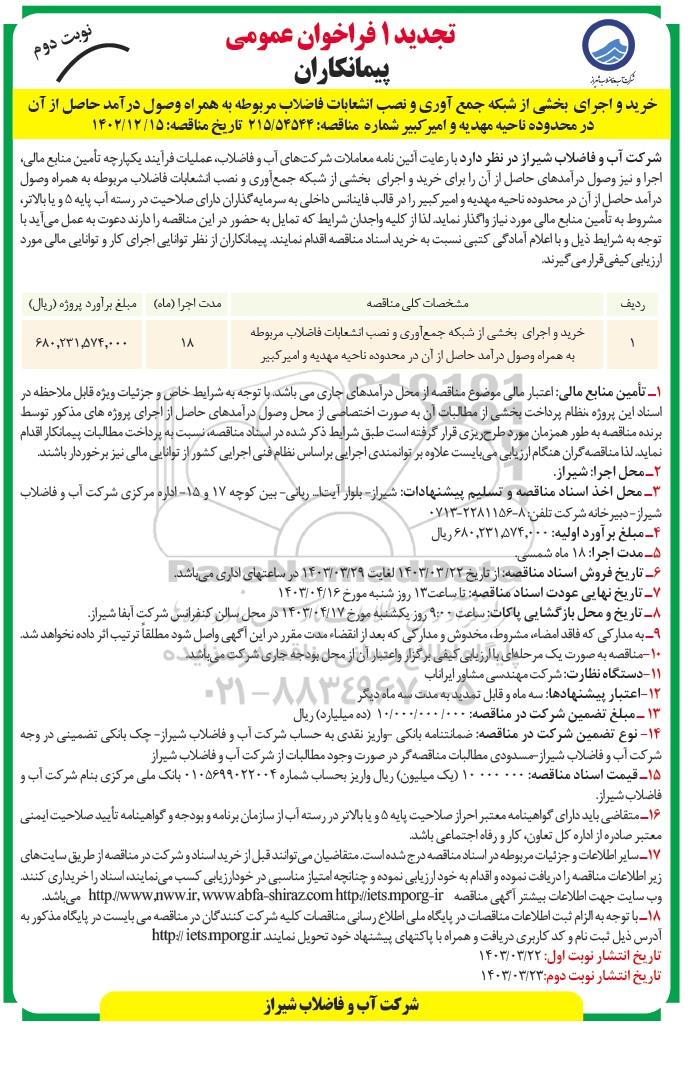 نوبت دوم
تجدید ۱ فراخوان عمومی
پیمانکاران
شرکت آب و فاضلاب شیراز
خرید و اجرای بخشی از شبکه جمع آوری و نصب انشعابات فاضلاب مربوطه به همراه وصول درآمد حاصل از آن
در محدوده ناحیه مهدیه و امیرکبیر شماره مناقصه: ۲۱۵/۵۴۵۴۴ تاریخ مناقصه: ۱۴۰۲/۱۲/۱۵
شرکت آب و فاضلاب شیراز در نظر دارد با رعایت آئین نامه معاملات شرکت‌های آب و فاضلاب، عملیات فرآیند یکپارچه تأمین منابع مالی،
اجرا و نیز وصول درآمدهای حاصل از آن را برای خرید و اجرای بخشی از شبکه جمع‌آوری و نصب انشعابات فاضلاب مربوطه به همراه وصول
درآمد حاصل از آن در محدوده ناحیه مهدیه و امیرکبیر را در قالب فاینانس داخلی به سرمایه‌گذاران دارای صلاحیت در رسته آب پایه ۵ و یا بالاتر،
مشروط به تأمین منابع مالی مورد نیاز واگذار نماید. لذا از کلیه واجدان شرایط که تمایل به حضور در این مناقصه را دارند دعوت به عمل می‌آید با
توجه به شرایط ذیل و با اعلام آمادگی کتبی نسبت به خرید اسناد مناقصه اقدام نمایند. پیمانکاران از نظر توانایی اجرای کار و توانایی مالی مورد
ارزیابی کیفی قرار می‌گیرند.
ردیف مشخصات کلی مناقصه مدت اجرا (ماه) مبلغ برآورد پروژه (ریال)
۱ خرید و اجرای بخشی از شبکه جمع‌آوری و نصب انشعابات فاضلاب مربوطه ۱۸ ۶۸۰,۲۳۱,۵۷۴,۰۰۰
به همراه وصول درآمد حاصل از آن در محدوده ناحیه مهدیه و امیرکبیر
۱ـ تأمین منابع مالی: اعتبار مالی موضوع مناقصه از محل درآمدهای جاری می باشد. با توجه به شرایط خاص و جزئیات ویژه قابل ملاحظه در
اسناد این پروژه ،نظام پرداخت بخشی از مطالبات آن به صورت اختصاصی از محل وصول درآمدهای حاصل از اجرای پروژه های مذکور توسط
برنده مناقصه به طور همزمان مورد طرح‌ریزی قرار گرفته است طبق شرایط ذکر شده در اسناد مناقصه، نسبت به پرداخت مطالبات پیمانکار اقدام
نماید. لذا مناقصه‌گران هنگام ارزیابی می‌بایست علاوه بر توانمندی اجرایی براساس نظام فنی اجرایی کشور از توانایی مالی نیز برخوردار باشند.
۲ـ محل اجرا: شیراز.
۳ـ محل اخذ اسناد مناقصه و تسلیم پیشنهادات: شیراز- بلوار آیت‌ا... ربانی- بین کوچه ۱۷ و ۱۵- اداره مرکزی شرکت آب و فاضلاب
شیراز- دبیرخانه شرکت تلفن: ۸-۲۲۸۱۱۵۶-۰۷۱۳
۴ـ مبلغ برآورد اولیه: ۶۸۰,۲۳۱,۵۷۴,۰۰۰ ریال
۵ـ مدت اجرا: ۱۸ ماه شمسی.
۶ـ تاریخ فروش اسناد مناقصه: از تاریخ ۱۴۰۳/۰۳/۲۲ لغایت ۱۴۰۳/۰۳/۲۹ در ساعتهای اداری می‌باشد.
۷ـ تاریخ نهایی عودت اسناد مناقصه: تا ساعت ۱۳ روز شنبه مورخ ۱۴۰۳/۰۴/۱۶
۸ـ تاریخ و محل بازگشایی پاکات: ساعت ۹:۰۰ روز یکشنبه مورخ ۱۴۰۳/۰۴/۱۷ در محل سالن کنفرانس شرکت آبفا شیراز.
۹ـ به مدارکی که فاقد امضاء، مشروط، مخدوش و مدارکی که بعد از انقضاء مدت مقرر در این آگهی واصل شود مطلقاً ترتیب اثر داده نخواهد شد.
۱۰-مناقصه به صورت یک مرحله‌ای با ارزیابی کیفی برگزار و اعتبار آن از محل بودجه جاری شرکت می‌باشد.
۱۱-دستگاه نظارت: شرکت مهندسی مشاور ایراناب
۱۲-اعتبار پیشنهادها: سه ماه و قابل تمدید به مدت سه ماه دیگر
۱۳ ـ مبلغ تضمین شرکت در مناقصه: ۱۰/۰۰۰/۰۰۰/۰۰۰ (ده میلیارد) ریال
۱۴- نوع تضمین شرکت در مناقصه: ضمانتنامه بانکی -واریز نقدی به حساب شرکت آب و فاضلاب شیراز- چک بانکی تضمینی در وجه
شرکت آب و فاضلاب شیراز-مسدودی مطالبات مناقصه‌گر در صورت وجود مطالبات از شرکت آب و فاضلاب شیراز
۱۵ـ قیمت اسناد مناقصه: ۰۰۰ ۰۰۰ ۱۰ (یک میلیون) ریال واریز بحساب شماره ۰۱۰۵۶۹۹۰۲۲۰۰۴ بانک ملی مرکزی بنام شرکت آب و
فاضلاب شیراز.
۱۶ـ متقاضی باید دارای گواهینامه معتبر احراز صلاحیت پایه ۵ و یا بالاتر در رسته آب از سازمان برنامه و بودجه و گواهینامه تأیید صلاحیت ایمنی
معتبر صادره از اداره کل تعاون، کار و رفاه اجتماعی باشد.
۱۷ـ سایر اطلاعات و جزئیات مربوطه در اسناد مناقصه درج شده است. متقاضیان می‌توانند قبل از خرید اسناد و شرکت در مناقصه از طریق سایت‌های
زیر اطلاعات مناقصه را دریافت نموده و اقدام به خود ارزیابی نموده و چنانچه امتیاز مناسبی در خودارزیابی کسب می‌نمایند، اسناد را خریداری کنند.
وب سایت جهت اطلاعات بیشتر آگهی مناقصه http://www.nww.ir, www.abfa-shiraz.com http://iets.mporg-ir می‌باشد.
۱۸ـ با توجه به الزام ثبت اطلاعات مناقصات در پایگاه ملی اطلاع رسانی مناقصات کلیه شرکت کنندگان در مناقصه می بایست در پایگاه مذکور به
آدرس ذیل ثبت نام و کد کاربری دریافت و همراه با پاکتهای پیشنهاد خود تحویل نمایند. http:// iets.mporg.ir
تاریخ انتشار نوبت اول: ۱۴۰۳/۰۳/۲۲
تاریخ انتشار نوبت دوم: ۱۴۰۳/۰۳/۲۳
شرکت آب و فاضلاب شیراز
۰۲۱-۸۸۳۴۹۶۷۰-۵